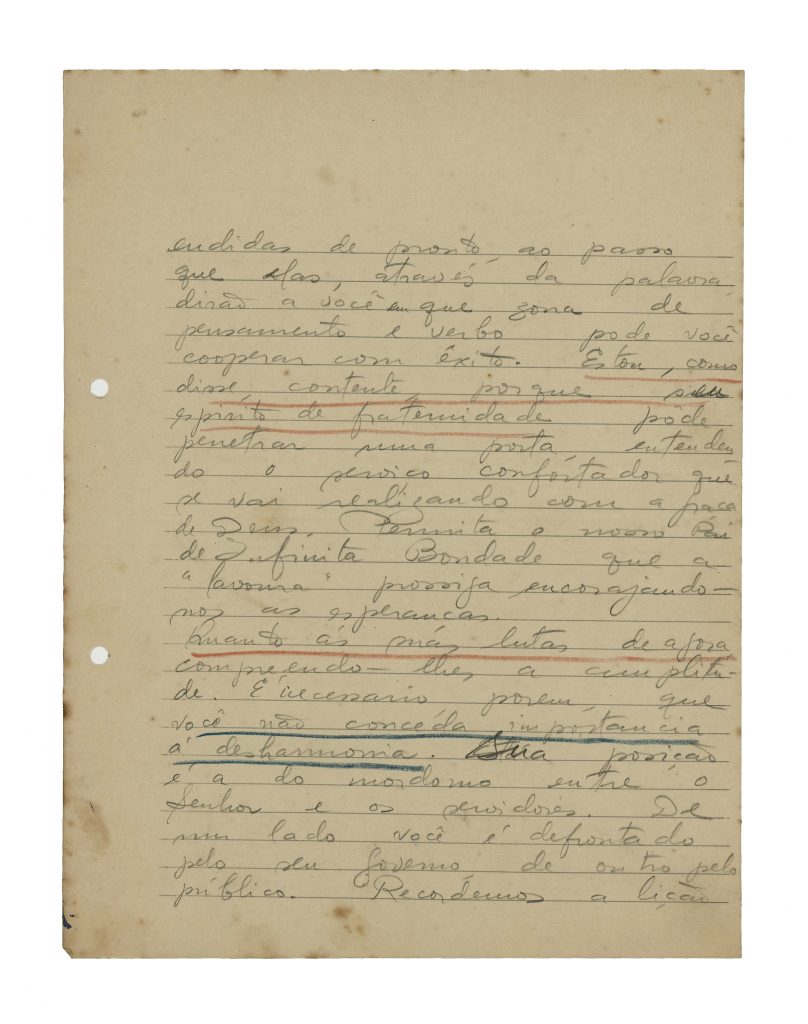 endidas de pronto, ao passo
que elas, através da palavra,
dirão a você em que zona de
pensamento e verbo pode você
cooperar com êxito. Estou, como
disse, contente, porque seu
espirito de fraternidade pôde
penetrar uma porta, entenden
do o serviço confortador que
se vai realizando com a graça
de Deus. Permita o nosso Pai
de Infinita Bondade que a
"lavoura" prossiga encorajando-
nos as esperancas.
Quanto ás más lutas de agora,
compreendo-lhes a amplitu-
de. É necessario porem, que
você não concêda importancia
á desharmonia. Sua posição
é a do mordomo entre o
Senhor e os servidores. De
um lado você é defrontado
pelo seu governo de outro pelo
público. Recordemos a lição